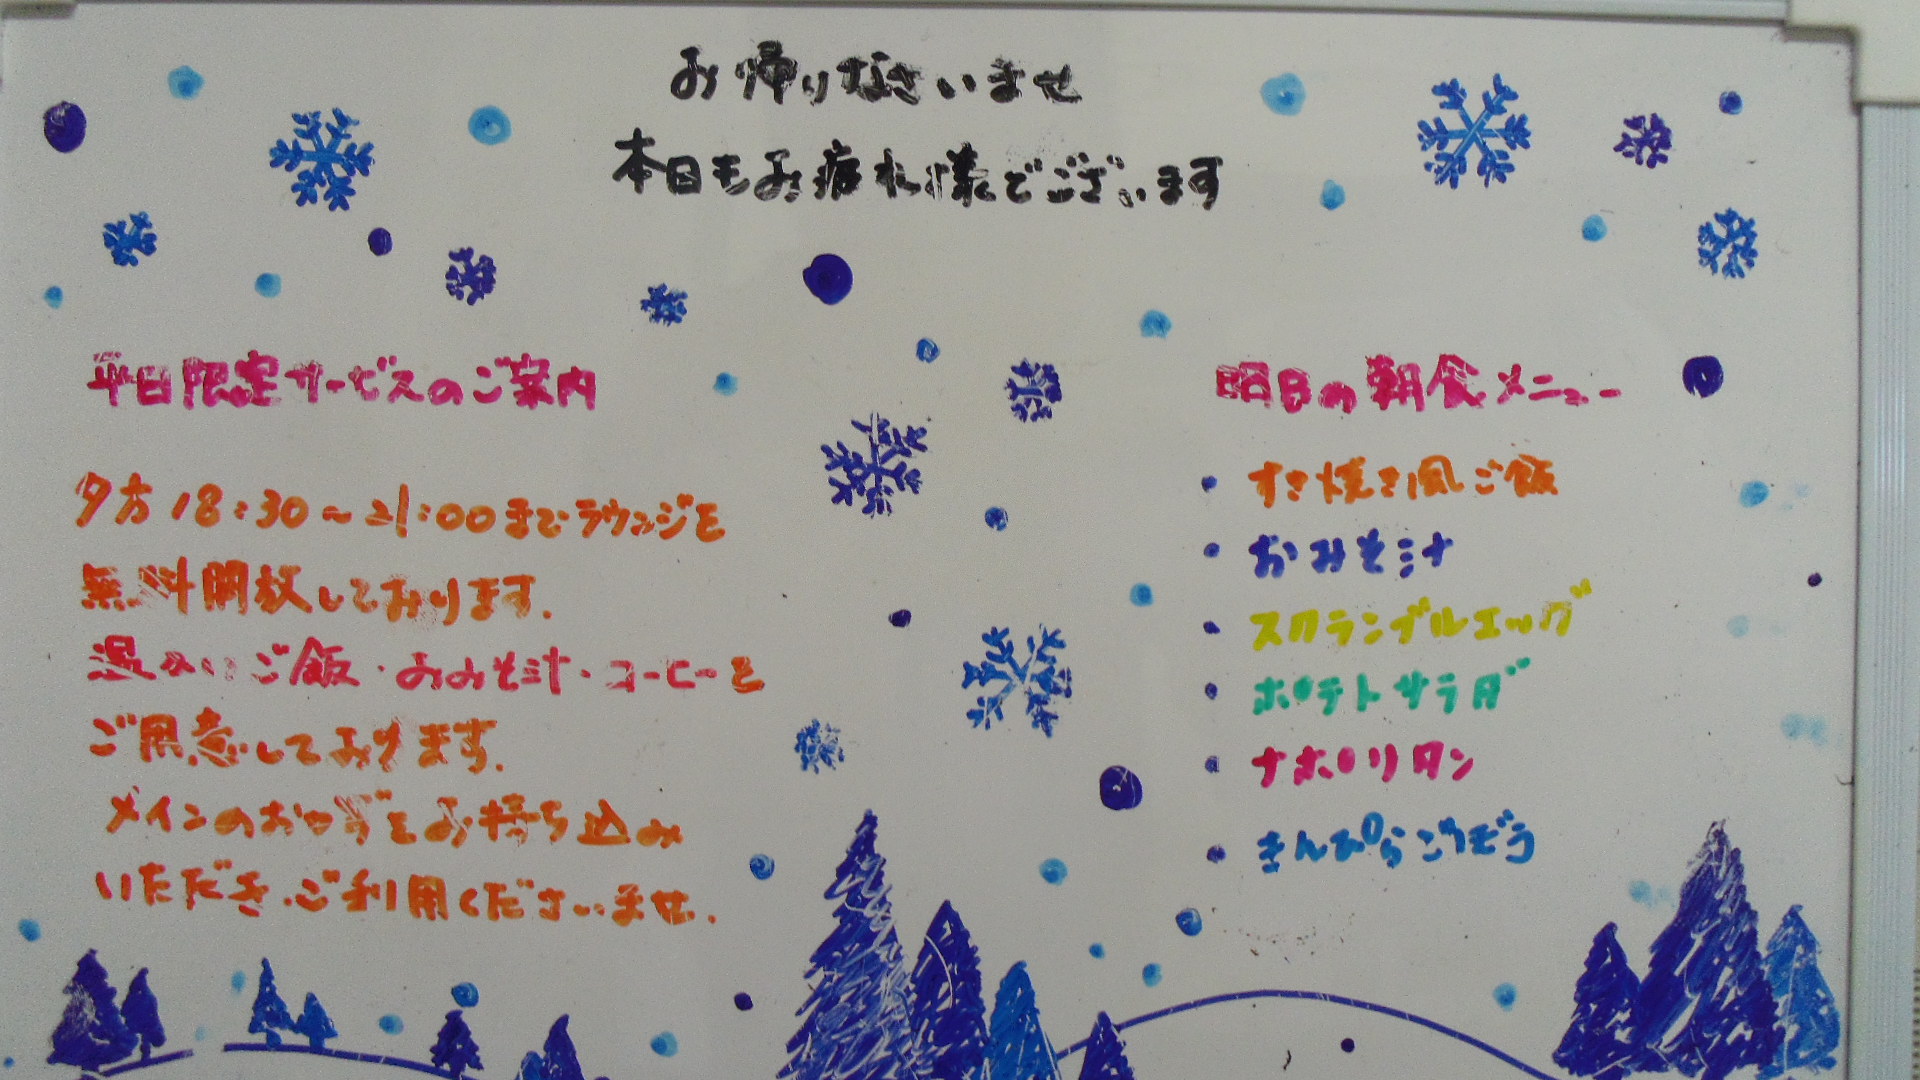 お帰りなさいませ
本日もお疲れ様でございます
平日限定サービスのご案内
夕方18:30〜21:00までラウンジを
無料開放しております.
温かいご飯・おみそ汁・コーヒーを
ご用意しております.
メインのおかずをお持ち込み
いただき、ご利用くださいませ.
明日の朝食メニュー
・すき焼き風ご飯
・おみそ汁
・スクランブルエッグ
・ポテトサラダ
・ナポリタン
・きんぴらごぼう